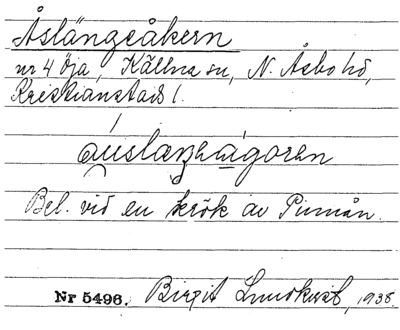 Åslängsåkern
nr 4 Öja, Källna sn, N. Åsbo hd,
Kristianstads l.
Bel. vid en krök av Pinnån.
Nr 5496. Birgit Lundkvist, 1938.